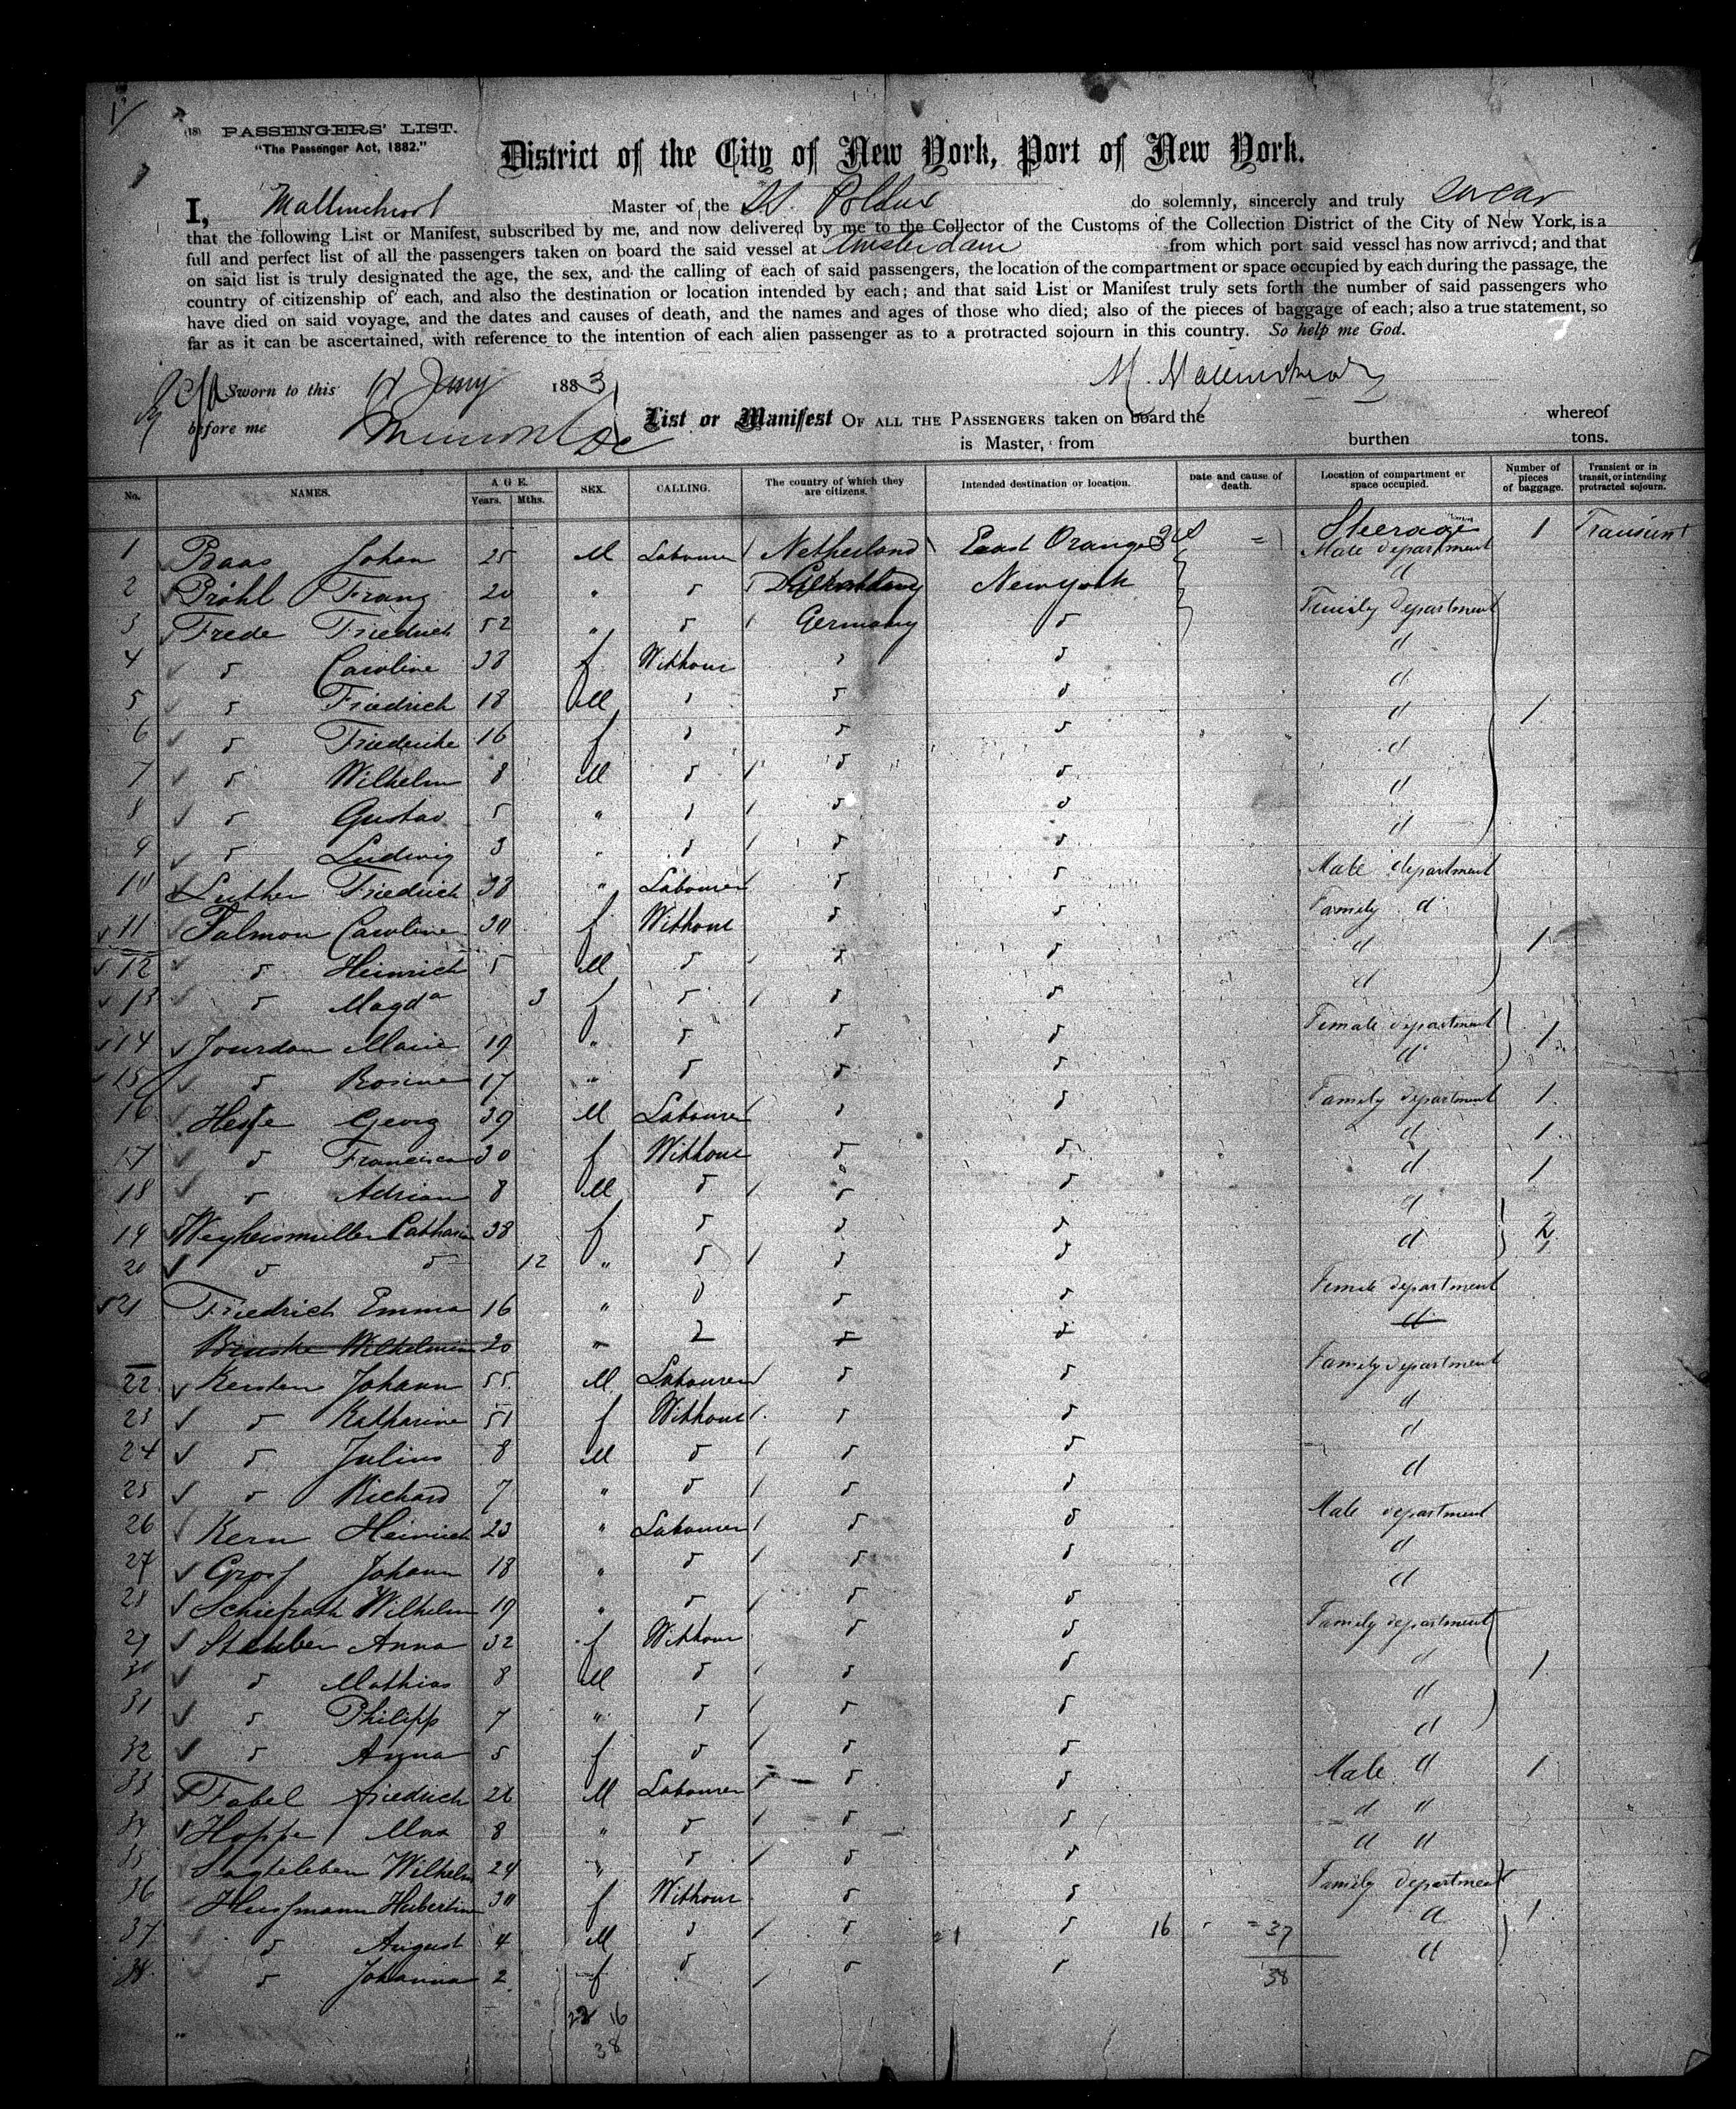 (18) PASSENGERS' LIST.
"The Passenger Act, 1882."
District of the City of New York, Port of New York.
I, Master of the St. Pollux do solemnly, sincerely and truly swear
that the following List or Manifest, subscribed by me, and now delivered by me to the Collector of the Customs of the Collection District of the City of New York, is a
full and perfect list of all the passengers taken on board the said vessel at Amsterdam from which port said vessel has now arrived; and that
on said list is truly designated the age, the sex, and the calling of each of said passengers, the location of the compartment or space occupied by each during the passage, the
country of citizenship of each, and also the destination or location intended by each; and that said List or Manifest truly sets forth the number of said passengers who
have died on said voyage, and the dates and causes of death, and the names and ages of those who died; also of the pieces of baggage of each; also a true statement, so
far as it can be ascertained, with reference to the intention of each alien passenger as to a protracted sojourn in this country. So help me God.
Sworn to this Jany 1883
before me
List or Manifest OF ALL THE PASSENGERS taken on board the whereof
is Master, from burthen tons.
No. NAMES. AGE. Years. Mths. SEX. CALLING. The country of which they are citizens. Intended destination or location. Date and cause of death. Location of compartment or space occupied. Number of pieces of baggage. Transient or in transit, or intending protracted sojourn.
1 Baas Johan 25 M Labourer Netherland East Orange Steerage Male department 1 Transient
2 Pröhl Franz 20 " d Germany New York d
3 Frede Friedrich 52 " d Germany d Family department
4 d Caroline 38 f Without d d d
5 d Friedrich 18 M d d d d
6 d Friedericke 16 f d d d d 1
7 d Wilhelm 8 M d d d d
8 d Gustav 5 " d d d d
9 d Ludwig 3 " d d d d
10 Luther Friedrich 38 " Labourer d d Male department
11 Talmon Caroline 30 f Without d d Family d
12 d Heinrich 5 M d d d d 1
13 d Magda 3 f d d d d
14 Jourdan Marie 19 " d d d Female department 1
15 d Rosine 17 " d d d d
16 Hesse Georg 39 M Labourer d d Family department 1
17 d Francisca 30 f Without d d d 1
18 d Adrian 8 M d d d d 1
19 Weyheismuller Catharin 38 f d d d d 2
20 d d 12 " d d d d
21 Friedrich Emma 16 " d d d Female department
Wilhelmine 20 " d d d
22 Kersten Johann 55 M Labourer d d Family department
23 d Katharine 51 f Without d d d
24 d Julius 8 M d d d d
25 d Richard 7 " d d d d
26 Kern Heinrich 23 " Labourer d d Male department
27 Gross Johann 18 " d d d d
28 Schiefrath Wilhelm 19 " d d d d
29 Stauber Anna 32 f Without d d Family department
30 d Mathias 8 M d d d d 1
31 d Philipp 7 " d d d d
32 d Anna 5 f d d d d
33 Fabel Friedrich 26 M Labourer d d Male d 1
34 Hoppe Max 8 " d d d d d
35 Sagteleben Wilhelm 24 " d d d d d
36 Heussmann Hubertin 30 f Without d d Family department
37 d August 4 M d d 21 d 16 = 37 d 1
38 d Johanna 2 f d d d 38 d
22 16
38